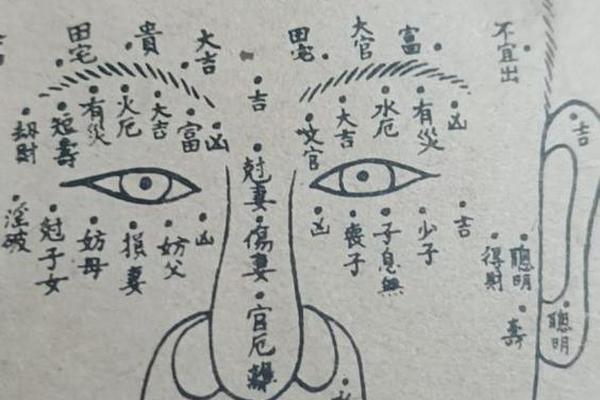 田宅
貴
大吉
田宅
大官
富
不宜出
吉
劫財
短壽
有災
火厄
大吉
富
凶
大吉
水厄
有災
凶
吉
淫破
尅子女
妨母
損妻
妨父
凶
尅妻
傷妻
官厄
凶
喪子
子息無
少子
吉
得財
聰明
壽
聰明